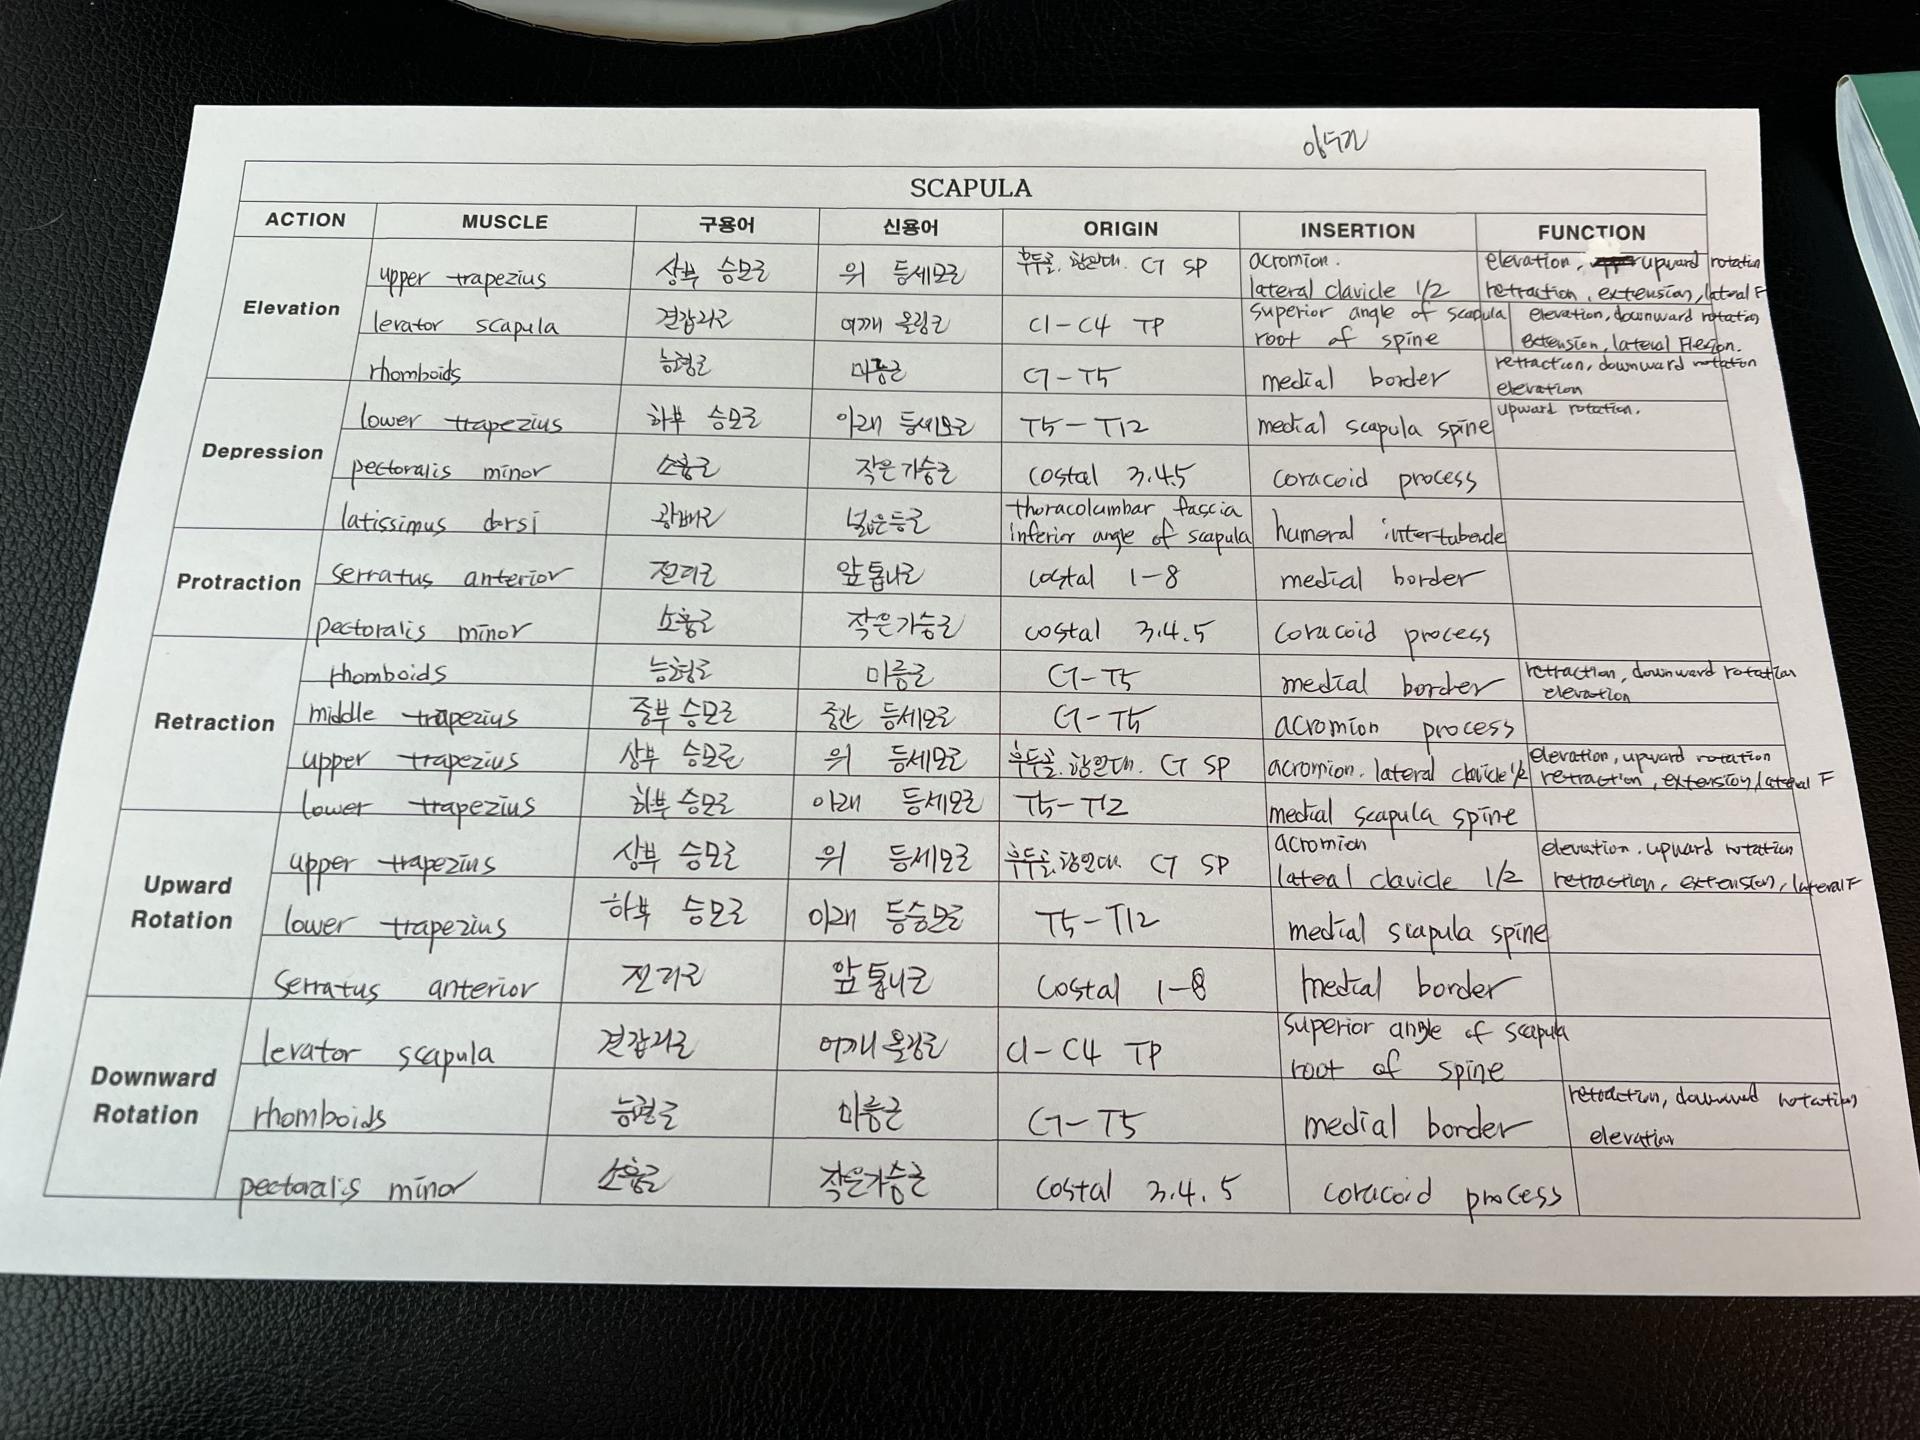 SCAPULA
ACTION MUSCLE 구용어 신용어 ORIGIN INSERTION FUNCTION
Elevation
upper trapezius 상부 승모근 위 등세모근 후두골. 항인대. C7 SP acromion. lateral clavicle 1/2 elevation, upward rotation retraction, extension, lateral F
levator scapula 견갑거근 어깨 올림근 C1-C4 TP superior angle of scapula root of spine elevation, downward rotation extension, lateral Flexion.
rhomboids 능형근 마름근 C7-T5 medial border retraction, downward rotation elevation
Depression
lower trapezius 하부 승모근 아래 등세모근 T5-T12 medial scapula spine upward rotation.
pectoralis minor 소흉근 작은가슴근 costal 3.4.5 coracoid process
latissimus dorsi 광배근 넓은등근 thoracolumbar fascia inferior angle of scapula humeral
Protraction
serratus anterior 전거근 앞톱니근 costal 1-8 medial border
pectoralis minor 소흉근 작은가슴근 costal 3.4.5 coracoid process
Retraction
rhomboids 능형근 마름근 C7-T5 medial border retraction, downward rotation elevation
middle trapezius 중부 승모근 중간 등세모근 C7-T5 acromion process
upper trapezius 상부 승모근 위 등세모근 후두골. 항인대. C7 SP acromion. lateral clavicle 1/2 elevation, upward rotation retraction, extension, lateral F
lower trapezius 하부 승모근 아래 등세모근 T5-T12 medial scapula spine
Upward Rotation
upper trapezius 상부 승모근 위 등세모근 후두골. 항인대. C7 SP acromion lateal clavicle 1/2 elevation. upward rotation retraction, extension, lateral F
lower trapezius 하부 승모근 아래 등승모근 T5-T12 medial scapula spine
serratus anterior 전거근 앞톱니근 costal 1-8 medial border
Downward Rotation
levator scapula 견갑거근 어깨 올림근 C1-C4 TP superior angle of scapula root of spine
rhomboids 능형근 마름근 C7-T5 medial border retraction, downward rotation elevation
pectoralis minor 소흉근 작은가슴근 costal 3.4.5 coracoid process